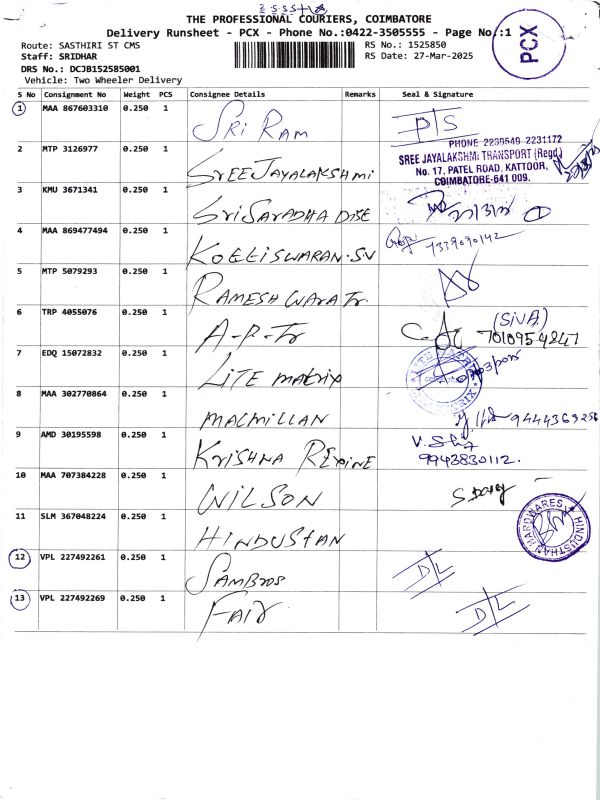 THE PROFESSIONAL COURIERS, COIMBATORE
Delivery Runsheet - PCX - Phone No.:0422-3505555 - Page No.:1
PCX
Route: SASTHIRI ST CMS
RS No.: 1525850
Staff: SRIDHAR
RS Date: 27-Mar-2025
DRS No.: DCJB152585001
Vehicle: Two Wheeler Delivery
S No Consignment No Weight PCS Consignee Details Remarks Seal & Signature
1 MAA 867603310 0.250 1 SRI RAM P/S
PHONE 2230549 2231172
2 MTP 3126977 0.250 1 SREE JAYALAKSHMI SREE JAYALAKSHMI TRANSPORT (Regd.)
No. 17, PATEL ROAD, KATTOOR,
COIMBATORE-641 009.
3 KMU 3671341 0.250 1 SRI SARADHA DISE
4 MAA 869477494 0.250 1 KOEEISWARAN.S.V 7339090142
5 MTP 5079293 0.250 1 RAMESHWARA Tr
6 TRP 4055076 0.250 1 A-R-Tr (SIVA)
7 EDQ 15072832 0.250 1 LITE MATRIX
8 MAA 302770864 0.250 1 MACMILLAN 9444369256
9 AMD 30195598 0.250 1 KRISHNA REXINE 9943830112.
10 MAA 707384228 0.250 1 WILSON
11 SLM 367048224 0.250 1 HINDUSTAN HINDUSTHAN HARDWARES
12 VPL 227492261 0.250 1 SAMBROS D/L
13 VPL 227492269 0.250 1 FAIR D/L